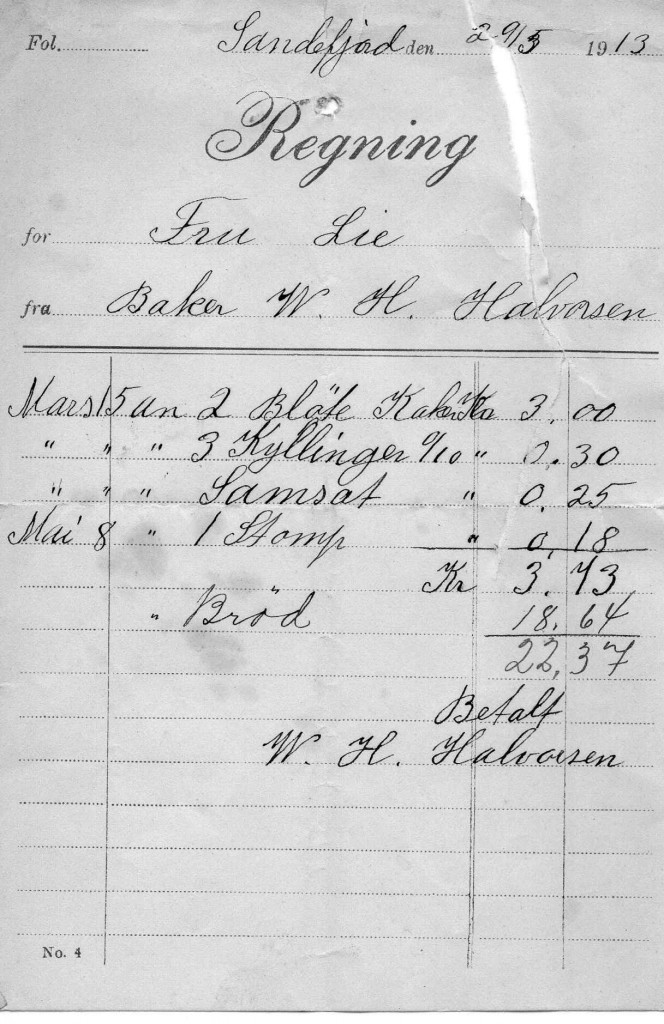 Fol. Sandefjord den 29/5 1913
Regning
for Fru Lie
fra Baker W. H. Halvorsen
Mars 15 an 2 Bløte Kaker Kr 3.00
" " " 3 Kyllinger 0/10 " 0.30
" " " Samsat " 0.25
Mai 8 " 1 Stomp " 0.18
Kr 3.73
" Brød 18.64
22,37
Betalt
W. H. Halvorsen
No. 4